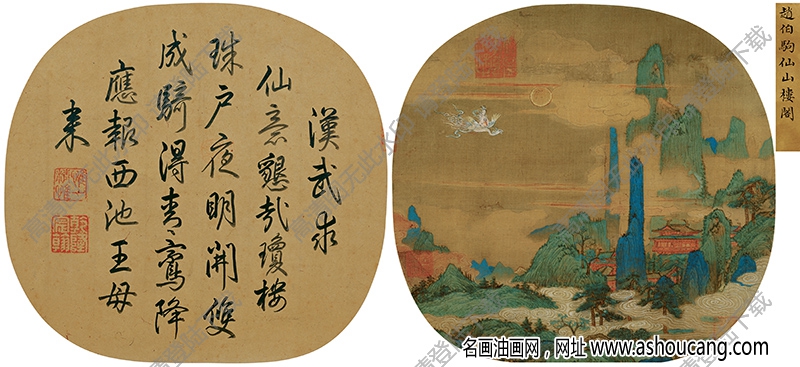 漢武求
仙意懇哉瓊樓
珠戶夜明開雙
成騎得青鸞降
應報西池王母
来
趙伯駒仙山樓閣
名画油画网，网址 www.ashoucang.com